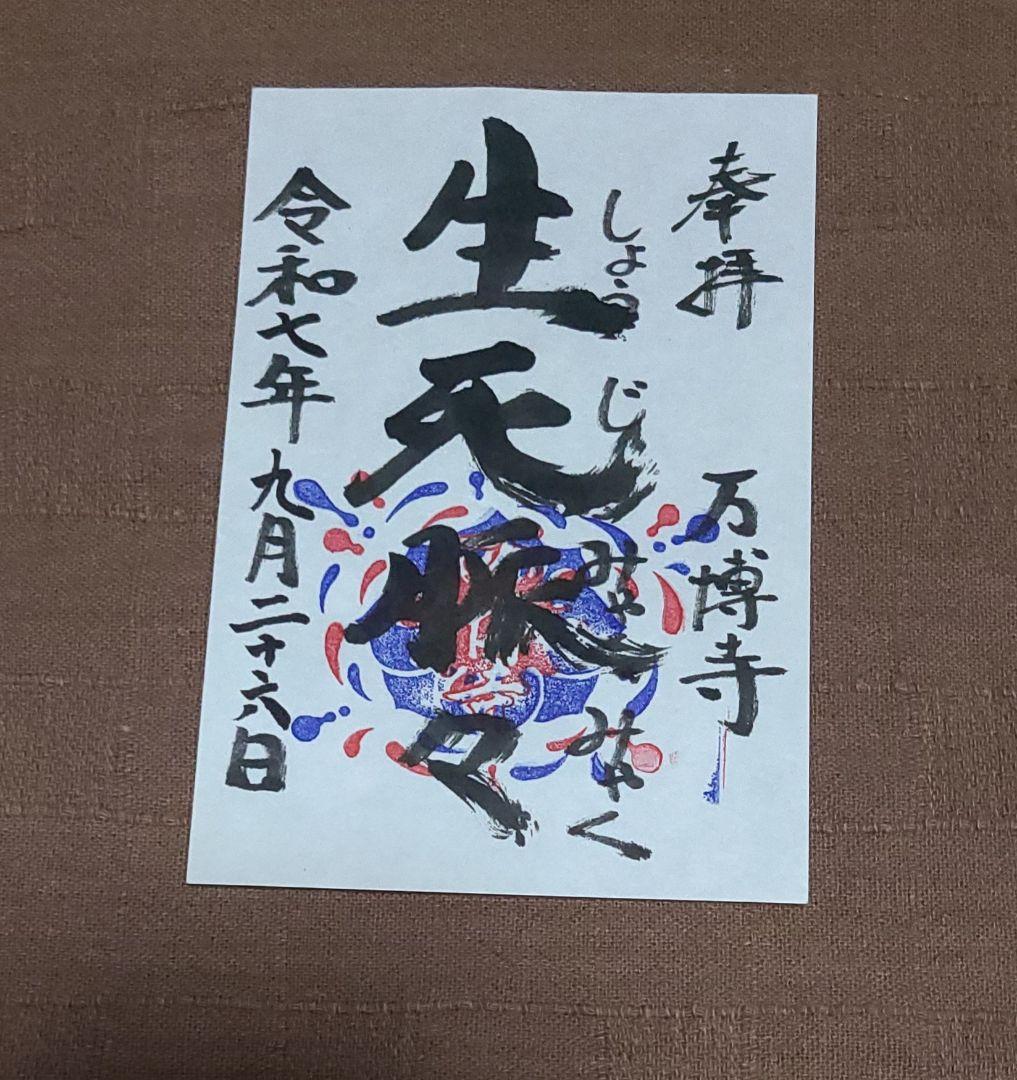 奉拝
万博寺
しょうじみゃくみゃく
生死脈々
令和七年九月二十六日